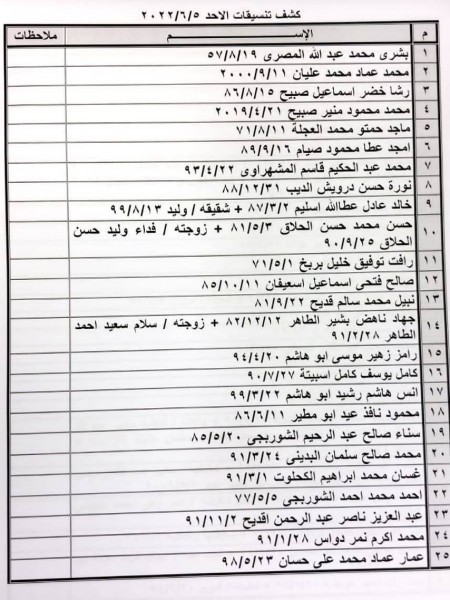 كشف تنسيقات الاحد ٢٠٢٢/٦/٥
م الإســـــــم ملاحظات
١ بشرى محمد عبد الله المصرى ٥٧/٨/١٩
٢ محمد عماد محمد عليان ٢٠٠٠/٩/١١
٣ رشا خضر اسماعيل صبيح ٨٦/٨/١٥
٤ محمد محمود منير صبيح ٢٠١٩/٤/٢١
٥ ماجد حمتو محمد العجلة ٧١/٨/١١
٦ امجد عطا محمود صيام ٨٩/٩/١٦
٧ محمد عبد الحكيم قاسم المشهراوى ٩٣/٤/٢٢
٨ نورة حسن درويش الديب ٨٨/١٢/٣١
٩ خالد عادل عطاالله اسليم ٨٧/٣/٢ + شقيقه / وليد ٩٩/٨/١٣
١٠ حسن محمد حسن الحلاق ٨١/٥/٣ + زوجته / فداء وليد حسن
الحلاق ٩٠/٩/٢٥
١١ رافت توفيق خليل بريخ ٧١/٥/١
١٢ صالح فتحى اسماعيل اسعيفان ٨٥/١٠/١١
١٣ نبيل محمد سالم قديح ٨١/٩/٢٢
١٤ جهاد ناهض بشير الطاهر ٨٢/١٢/١٢ + زوجته / سلام سعيد احمد
الطاهر ٩١/٢/٢٨
١٥ رامز زهير موسى ابو هاشم ٩٤/٤/٢٠
١٦ كامل يوسف كامل اسبيتة ٩٠/٧/٢٧
١٧ انس هاشم رشيد ابو هاشم ٩٩/٣/٢٢
١٨ محمود نافذ عيد ابو مطير ٨٦/٦/١١
١٩ سناء صالح عبد الرحيم الشوربجى ٨٥/٥/٢٠
٢٠ محمد صالح سلمان البدينى ٩١/٣/٢٤
٢١ غسان محمد ابراهيم الكحلوت ٩١/٣/١
٢٢ احمد محمد احمد الشوربجى ٧٧/٥/٥
٢٣ عبد العزيز ناصر عبد الرحمن اقديح ٩١/١١/٢
٢٤ محمد اكرم نمر دواس ٩١/١/٢٨
٢٥ عمار عماد محمد على حسان ٩٨/٥/٢٣